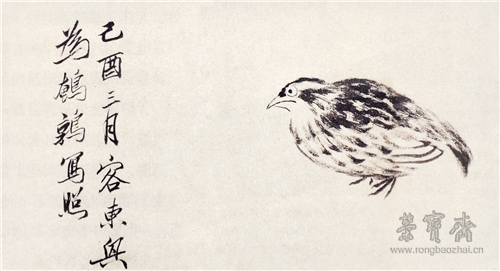 己酉三月容東與
為鵪鶉寫照
榮寶齋
www.rongbaozhai.cn